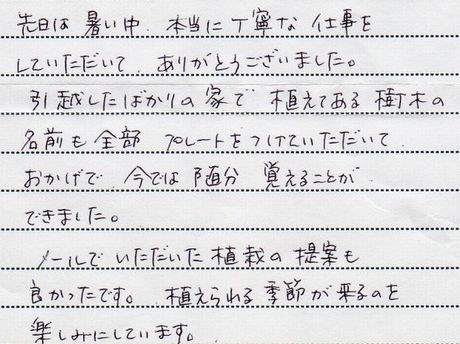 先日は 暑い中、本当に丁寧な仕事を
していただいて、ありがとうございました。
引越したばかりの家で 植えてある樹木の
名前も全部 プレートをつけていただいて、
おかげで、今では 随分 覚えることが
できました。
メールで いただいた植栽の提案も
良かったです。植えられる季節が来るのを
楽しみにしています。